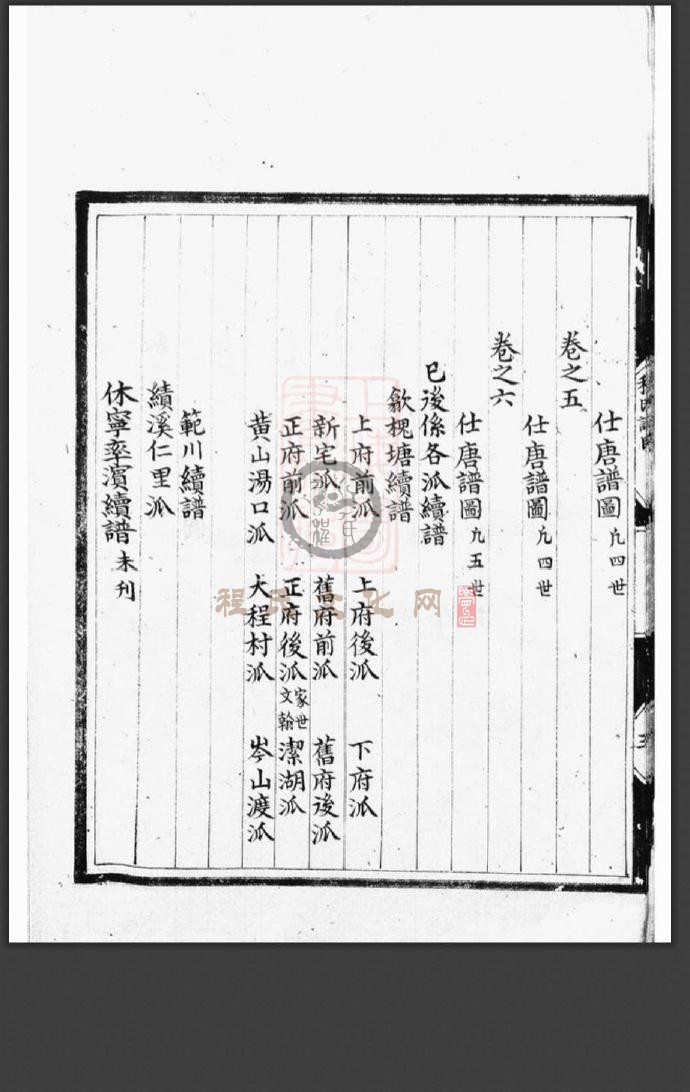 仕唐譜圖 凡四世
卷之五
仕唐譜圖 凡四世
卷之六
仕唐譜圖 凡五世
已後係各派續譜
歙槐塘續譜
上府前派 上府後派 下府派
新宅派 舊府前派 舊府後派
正府前派 正府後派 家世文翰 潔湖派
黃山湯口派 大程村派 岑山渡派
範川續譜
績溪仁里派
休寧率濱續譜 未刊
程氏文化网